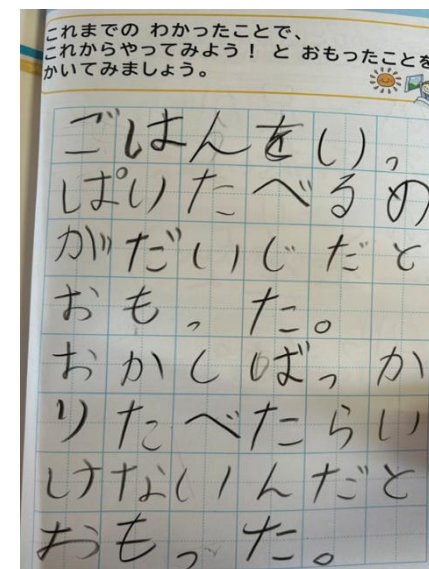 これまでの わかったことで、
これからやってみよう！ と おもったことを
かいてみましょう。
ごはんをいっ
ぱいたべるの
がだいじだと
おもった。
おかしばっか
りたべたらい
けないんだと
おもった。